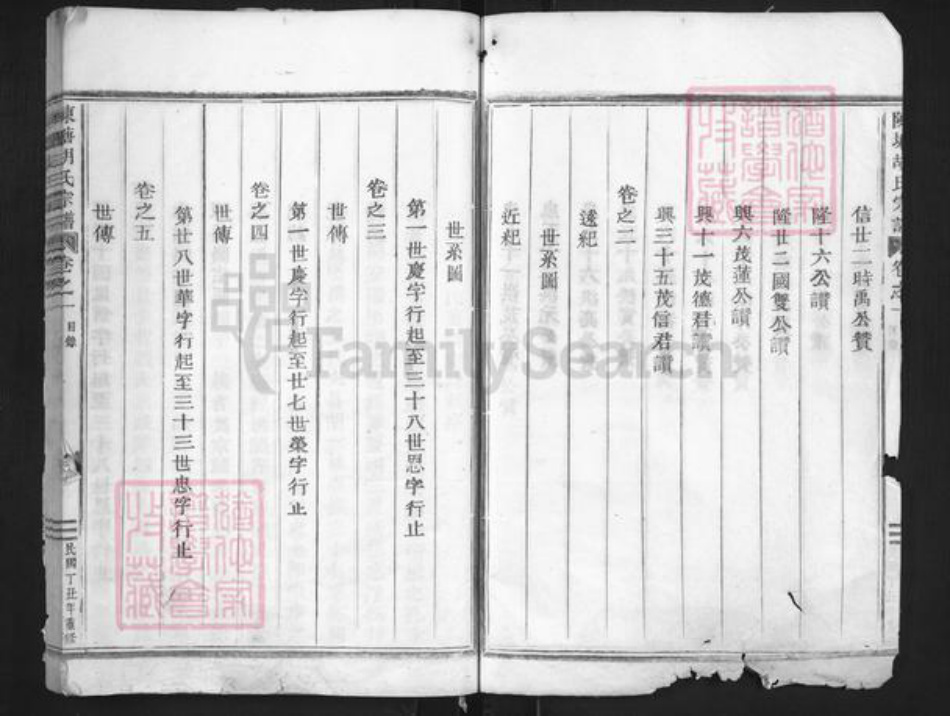 信廿二時禹公贊
隆十六公讚
隆廿二國雙公讚
興六茂蓮公讚
興十一茂德君讚
興三十五茂信君讚
卷之二
遠紀
世系圖
近紀
世系圖
第一世慶字行起至三十八世恩字行止
卷之三
世傳
第一世慶字行起至廿七世榮字行止
卷之四
世傳
第廿八世華字行起至三十三世忠字行止
卷之五
世傳
胡氏宗譜
卷之一
目錄
民國丁丑年重修
FamilySearch